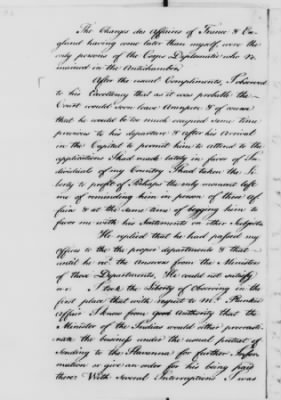 The Charges des Affaires of France & En-
gland having come later than myself, were the
only persons of the Corps Diplomatic who re
mained in the Antichamber.
After the usual Compliments, I observed
to his Excellency that as it was probable the
Court would soon leave Aranjuez & of course
that he would be too much occupied some time
previous to his departure & after his arrival
in the Capital to permit him to attend to the
applications I had made lately in favor of In-
dividuals of my Country I had taken the Li
berty to profit of Perhaps the only moment left
me of reminding him in person of these Af
fairs & at the same time of begging him to
favor me with his Sentiments on other subjects
He replied that he had passed my
Offices to the proper departments & that
until he recd. the Answers from the Ministers
of those Departments, He could not satisfy
me. I took the Liberty of Observing in the
first place that with regard to Mr.
Affair I knew from good Authority that the
Minister of the Indias would either procrasti-
nate the business under the usual pretext of
Sending to the Havanna for further Infor
mation or give an order for his being paid
there. With Several Interruptions I was